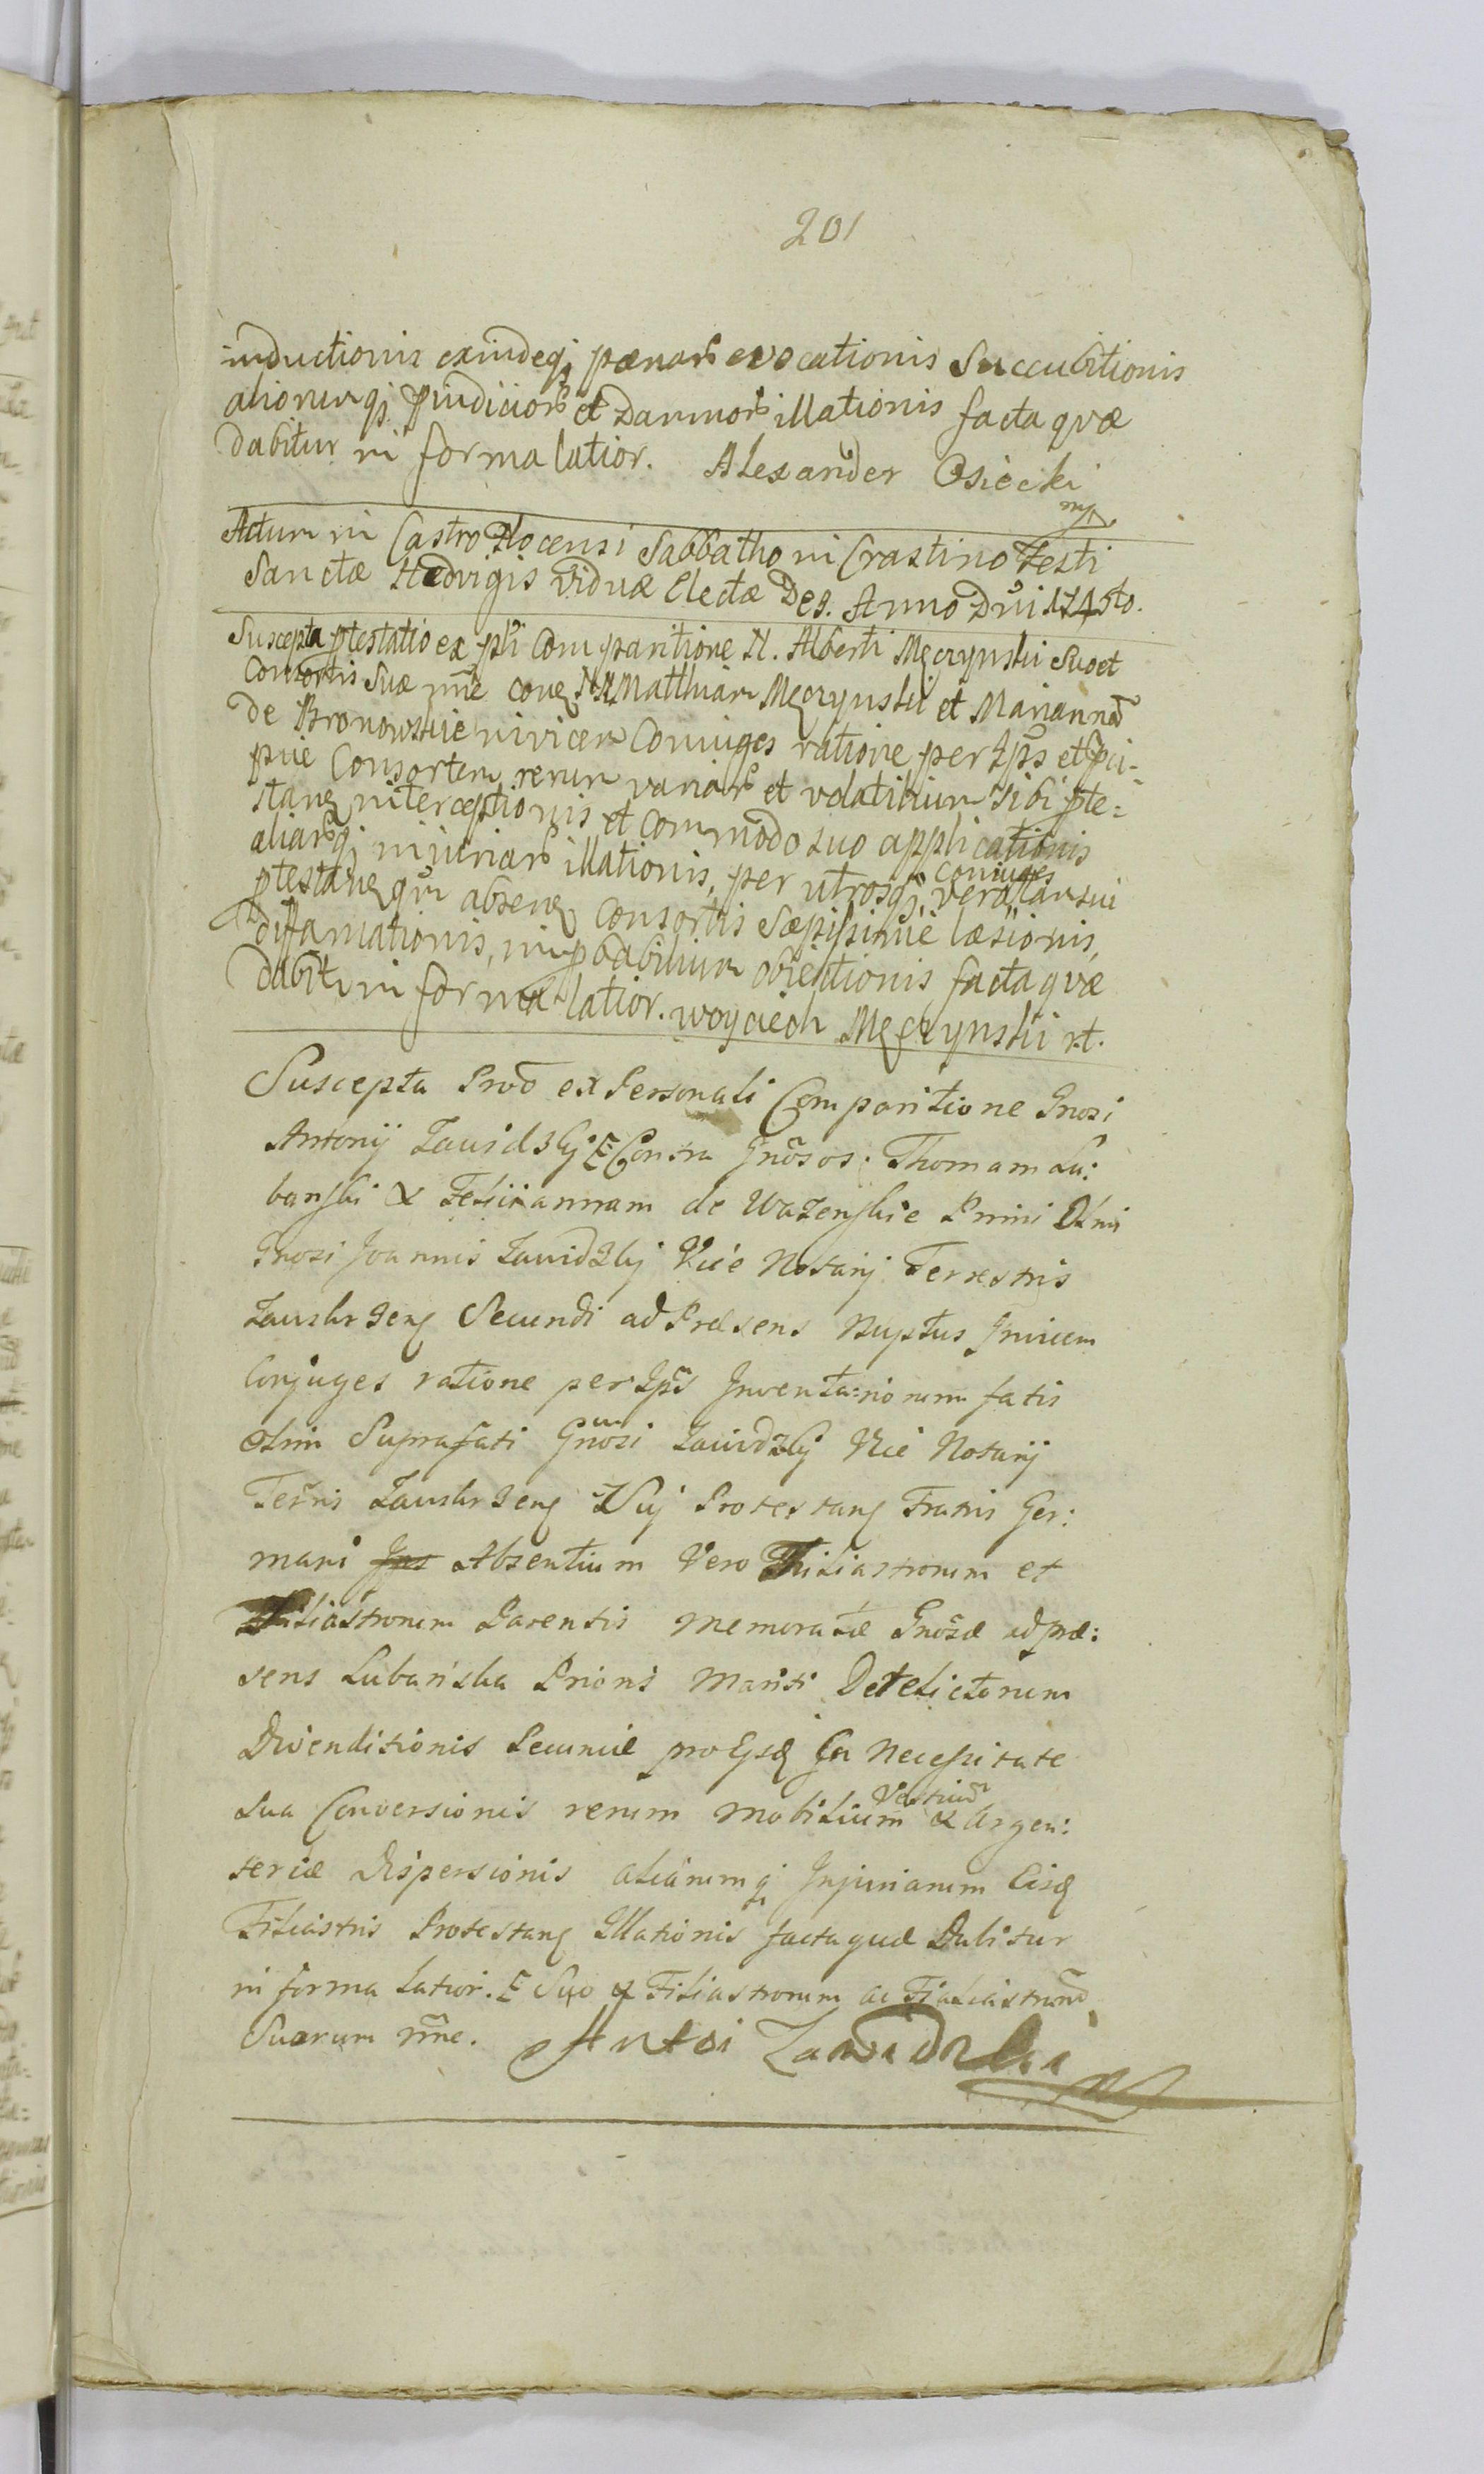 201
inductionis exindeq; pænarū evocationis Succubitionis
aliorumq; pjudiciorū et Damnorū illationis facta quæ
dabitur in forma latior. Alexander Osiecki
mp
Actum in Castro Plocensi Sabbatho in Crastino Festi
Sanctæ Hedvigis Viduæ Electæ Anno Dni 1745to.
Suscepta ptestatio ex pli Comparitione N. Alberti Męczynski Suo et
Consortis Suæ nne NN Matthiam Męczynski et Mariannā
de Bronowskie invicem Coniuges ratione per Ips et
Consortem rerum variarū et volatilium Sibi pte=
stan interceptionis et commodo suo applicationis
aliarūq; iniuriarū illationis, per utrosq; coniuges vero
ptestan absen Consortis Sæpissime læsionis,
diffamationis, improbabilium obiectionis facta quæ
dabit in forma latior. Woyciech Męczynski
Suscepta ex Personali Comparitione Gnosi
Antonij Zawidzkij E Contra Gnosos Thomam Lu:
banski & Feliciannam de Wazenskie Primi Olim
Gnosi Joannis Zawidzkij Vice Notarij Terrestris
Zawskrzen Secundi ad Præsens Nuptus Invicem
Conjuges ratione per Ips Inventariorum fatis
Olim Suprafati Gnosi Zawidzkij Vice Notarij
Terris Zawskrzen Protestan Fratris Ger:
mani Absentium Vero Filiastrorum et
Filiastrorum Parentis memoratæ Gnosæ ad præ:
sens Lubańska Prioris Mariti Derelictorum
Divenditionis Pecuniæ pro Necessitate
Sua Conversionis rerum Mobilium Vestium & Argen:
teriæ Dispersionis aliarumq; Injuriarum Eisd
Filiastris Protestan Illationis facta quæ Dabitur
in forma Latior. E Suo & Filiastrorum ac Filiastrarū
Suarum nne. Antoi Zawidzki